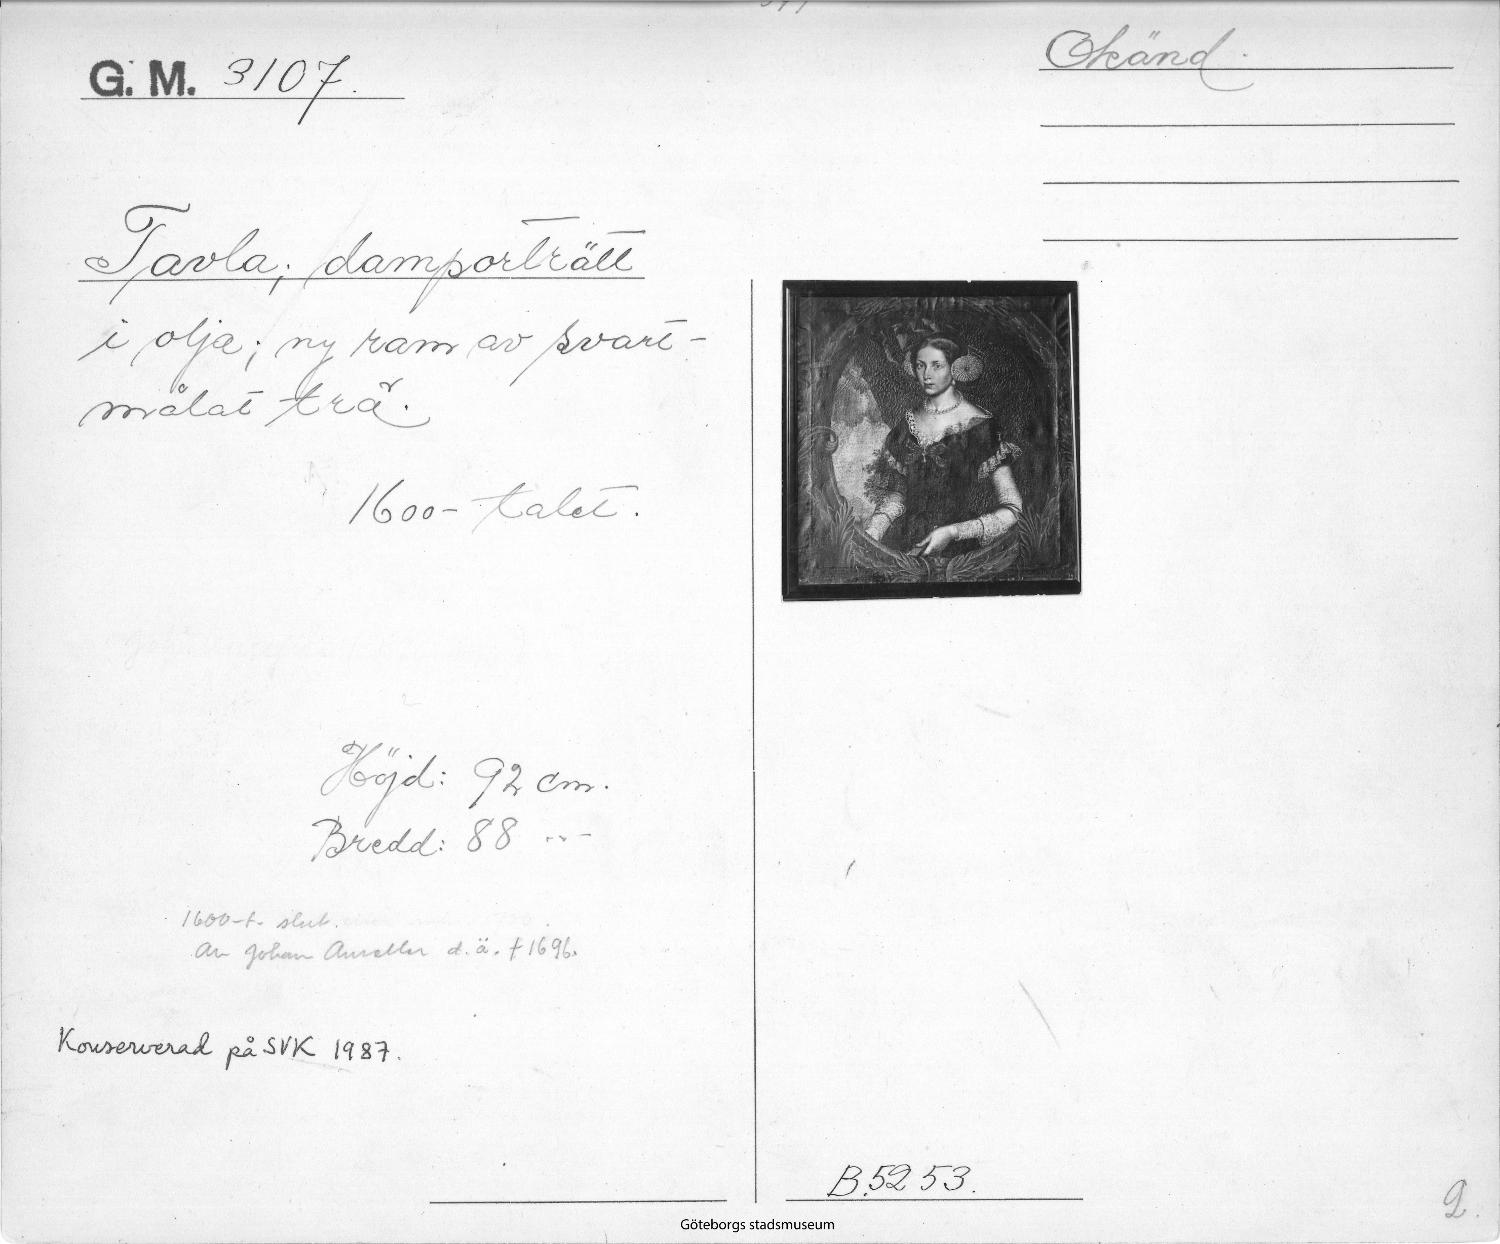 G. M. 3107.
Okänd.
Tavla; damporträtt
i olja; ny ram av svart-
målat trä.
1600-talet.
Höjd: 92 cm.
Bredd: 88 -"-
1600-t. slut.
Av Johan Aureller d.ä. † 1696.
Konserverad på SVK 1987.
B.5253.
Göteborgs stadsmuseum